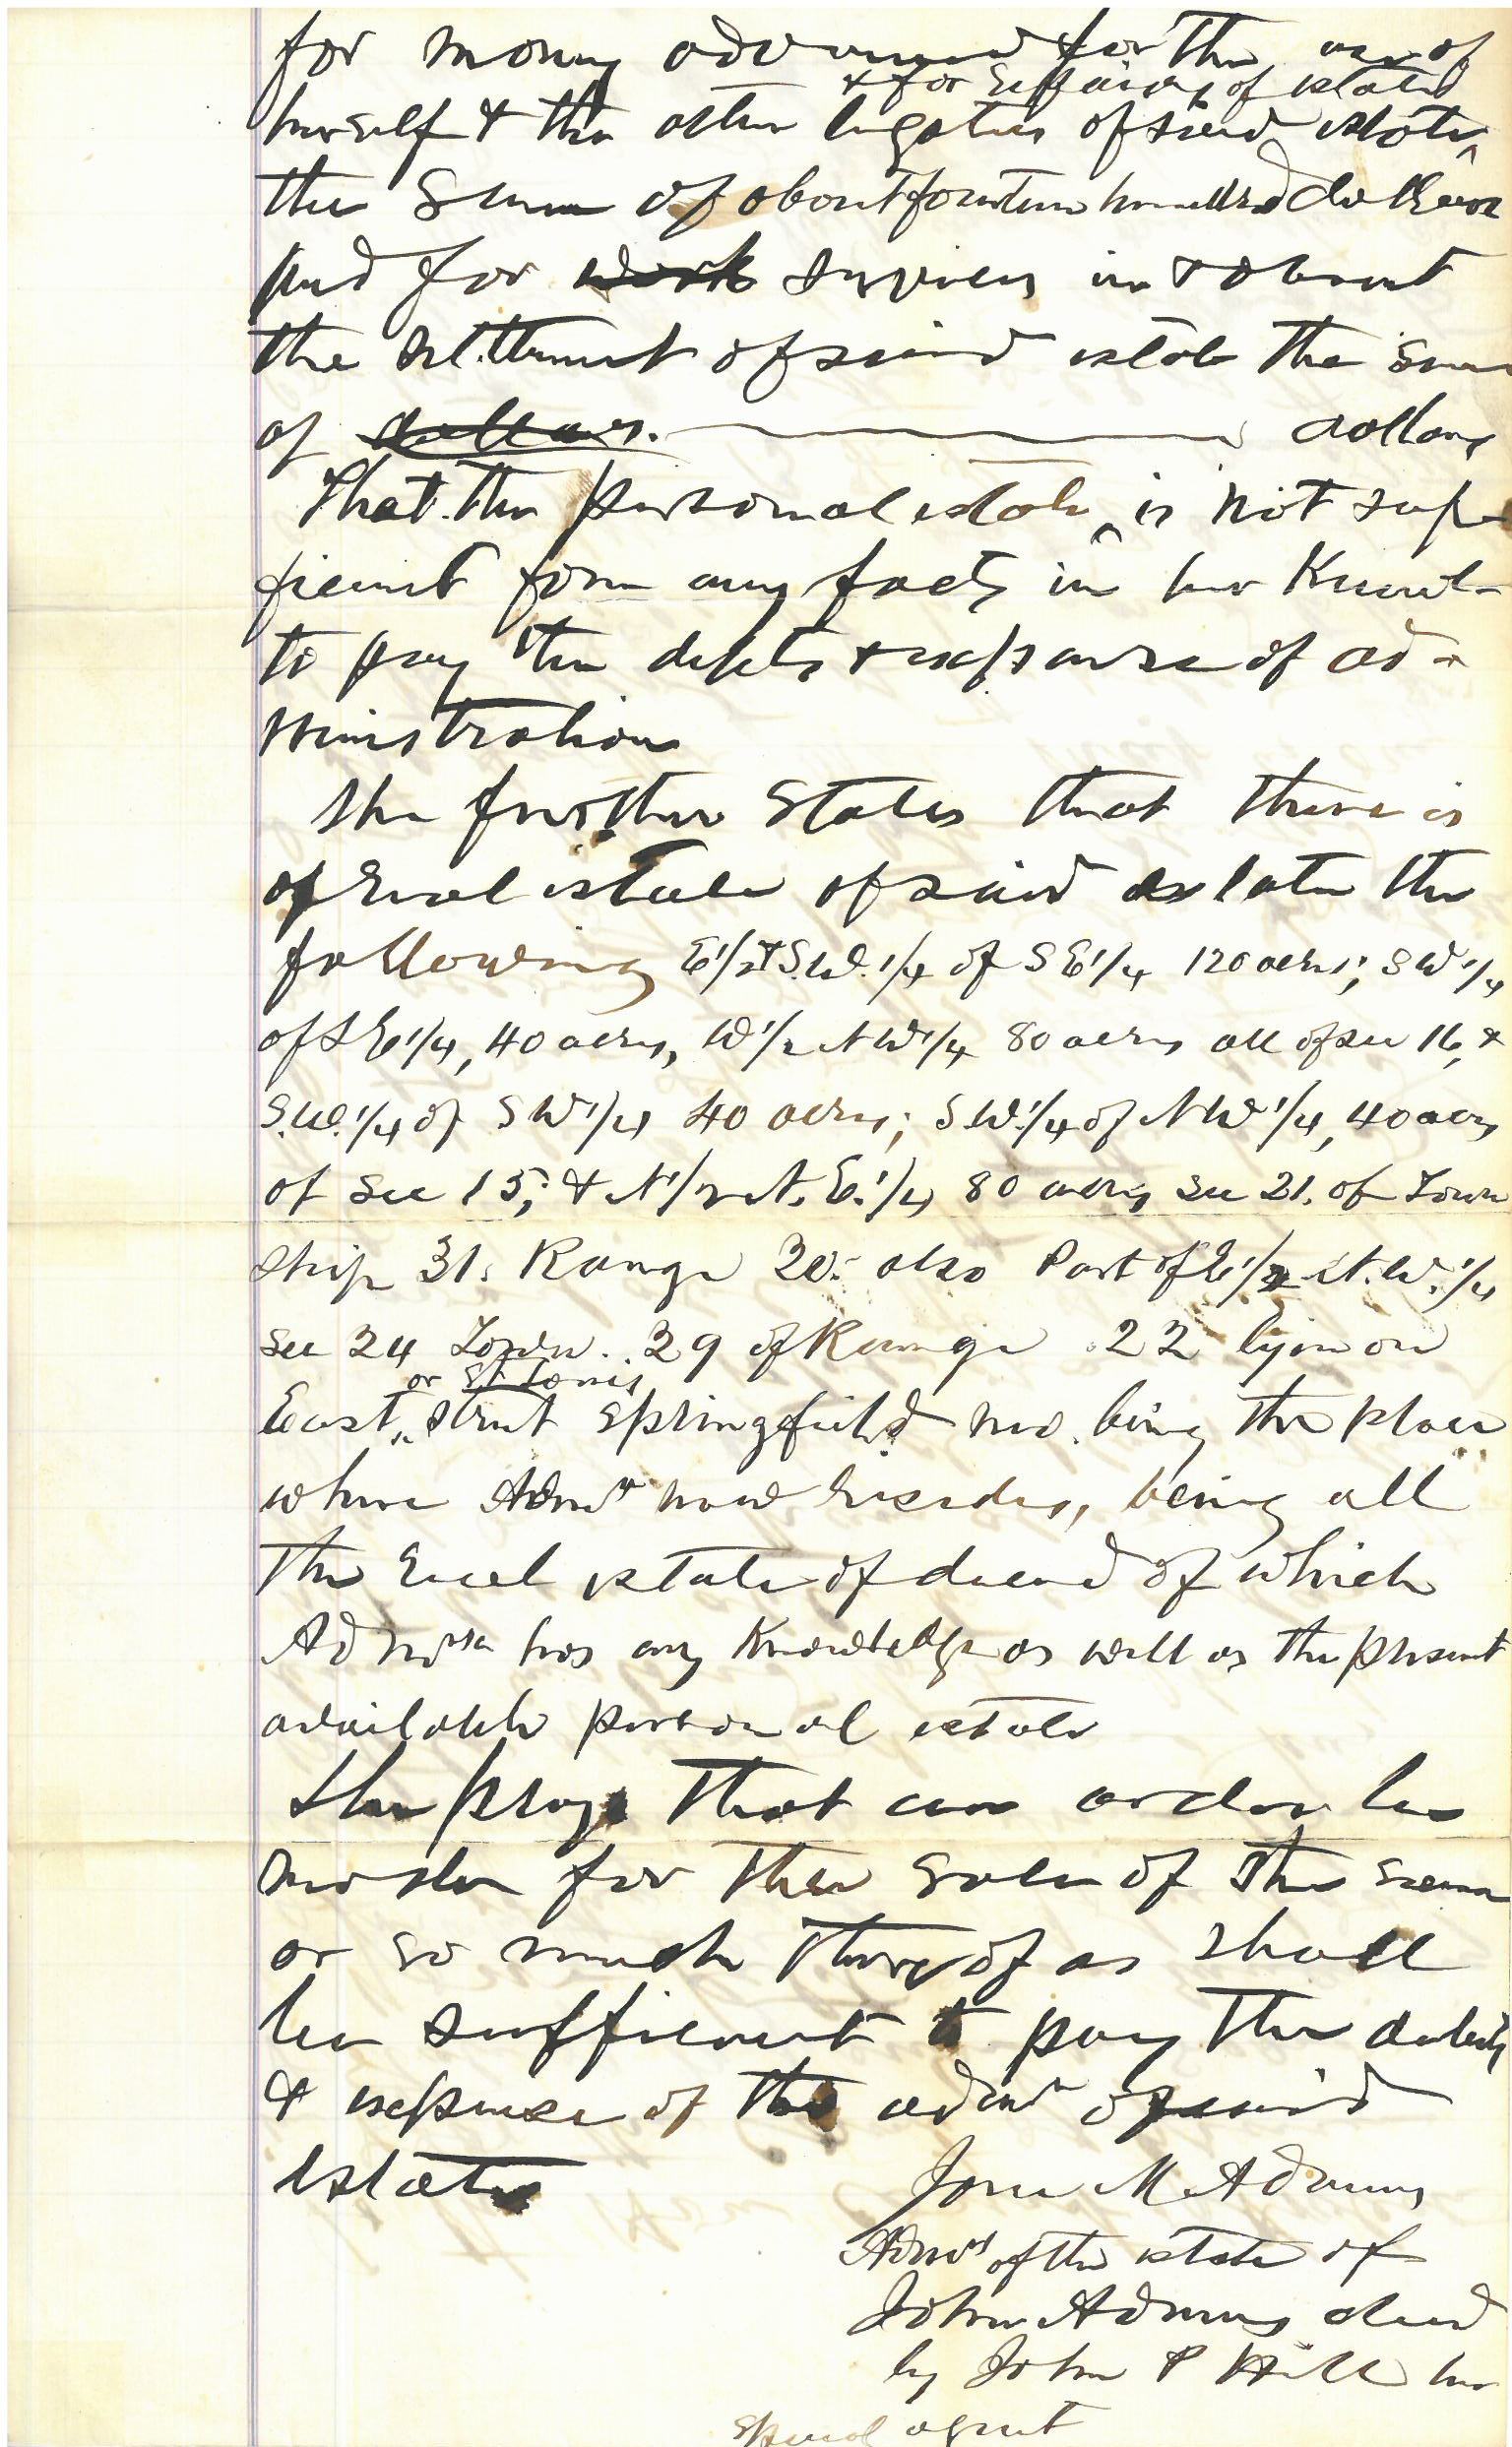 for money advanced for the use of
& for Expenses of estate
herself & the other legatees of said estate
the Sum of about fourteen hundred dollars
and for work services in & about
the settlement of said estate the sum
of dollars. dollars
That the personal estate is not suf-
ficient from any facts in her Knowl-
to pay the debts & expense of ad-
ministration
She further States that there is
of real estate of said estate the
following E1/2 & S.W. 1/4 of S E1/4 120 acres; S W 1/4
of S E1/4, 40 acres, W 1/2 N W 1/4 80 acres all of sec 16, &
S.W. 1/4 of S W 1/4 40 acres; S.W. 1/4 of N W 1/4, 40 acres
of Sec 15; & N 1/2 N. E. 1/4 80 acres sec 21. of Town
ship 31. Range 20. also Part of E 1/2 N. W. 1/4
sec 24 Town. 29 of Range 22 lying on
or St Louis
East street Springfield Mo. being the place
where Admr now resides, being all
the real estate of deceased of which
Admrx has any Knowledge as well as the present
available personal estate
She prays that an order be
made for the sale of the same
or so much thereof as shall
be sufficient to pay the debts
& expense of the admr of said
estate
Jane M Adams
Admrx of the estate of
John Adams decd
by John P Hill her
Special agent